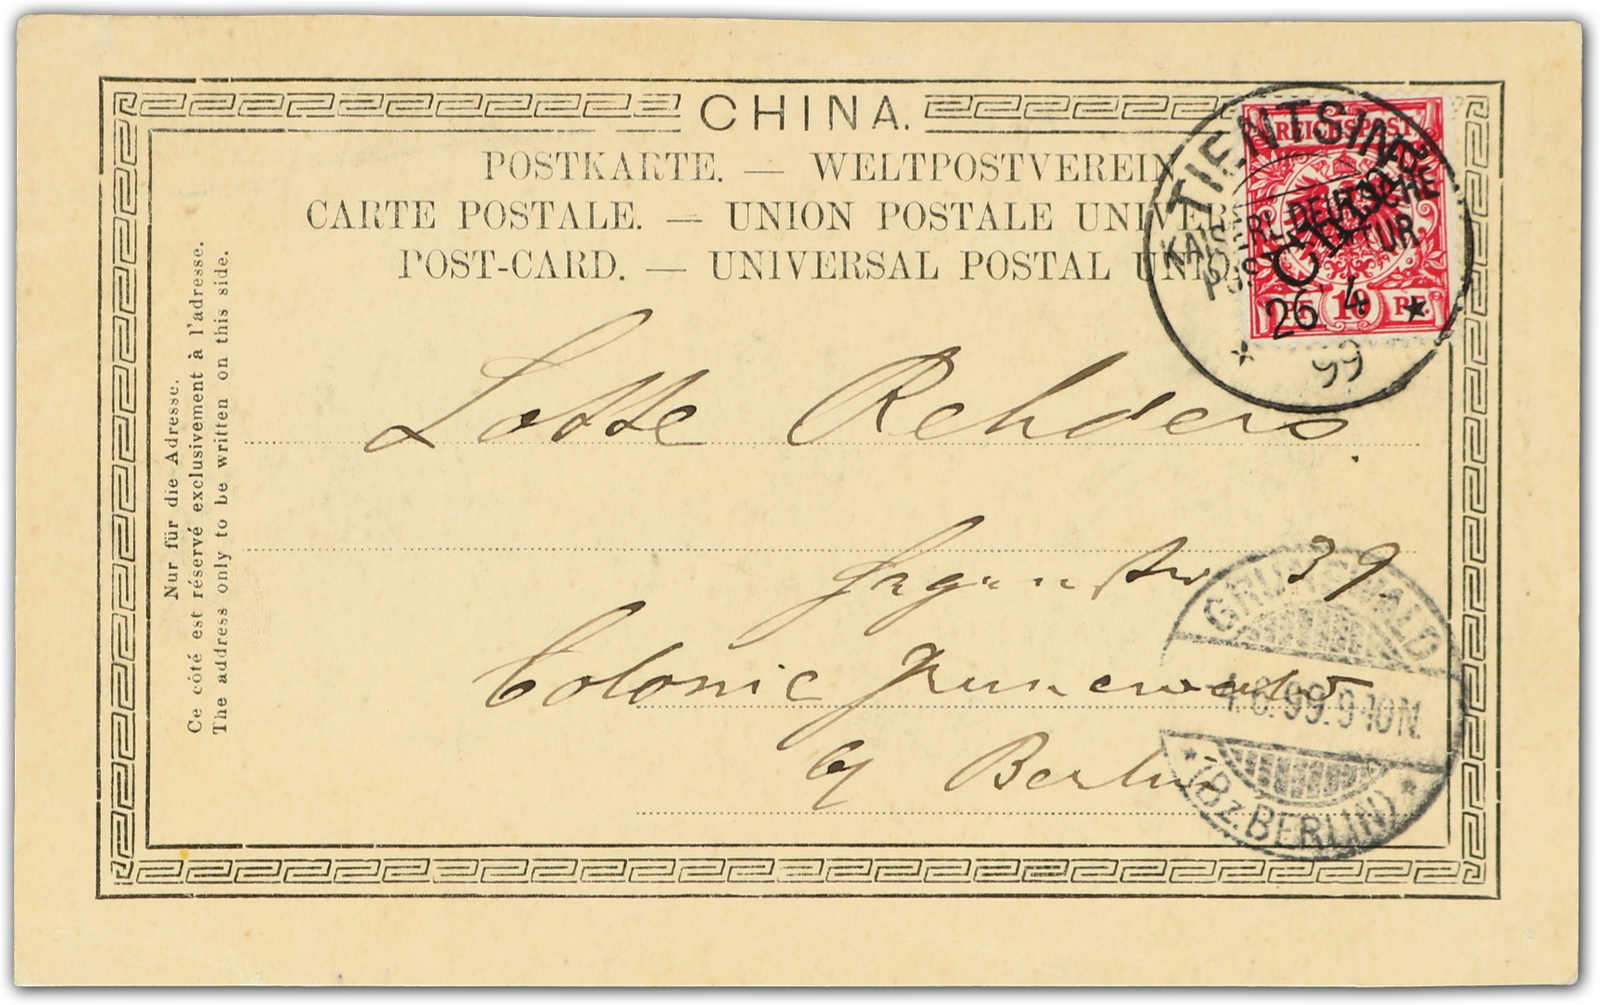 CHINA.
POSTKARTE. — WELTPOSTVEREIN
CARTE POSTALE. — UNION POSTALE UNIVER
POST-CARD. — UNIVERSAL POSTAL UNIO
Nur für die Adresse.
Ce côté est réservé exclusivement à l'adresse.
The address only to be written on this side.
REICHSPOST
China
PF. 10 PF.
TIENTSIN
KAISERL. DEUTSCHE
POSTAGENTUR
26 4
99
Lotte Rehders.
39
Colonie Grunewald
by Berlin
GRUNEWALD
4.6.99.9-10N.
* (Bz. BERLIN) *